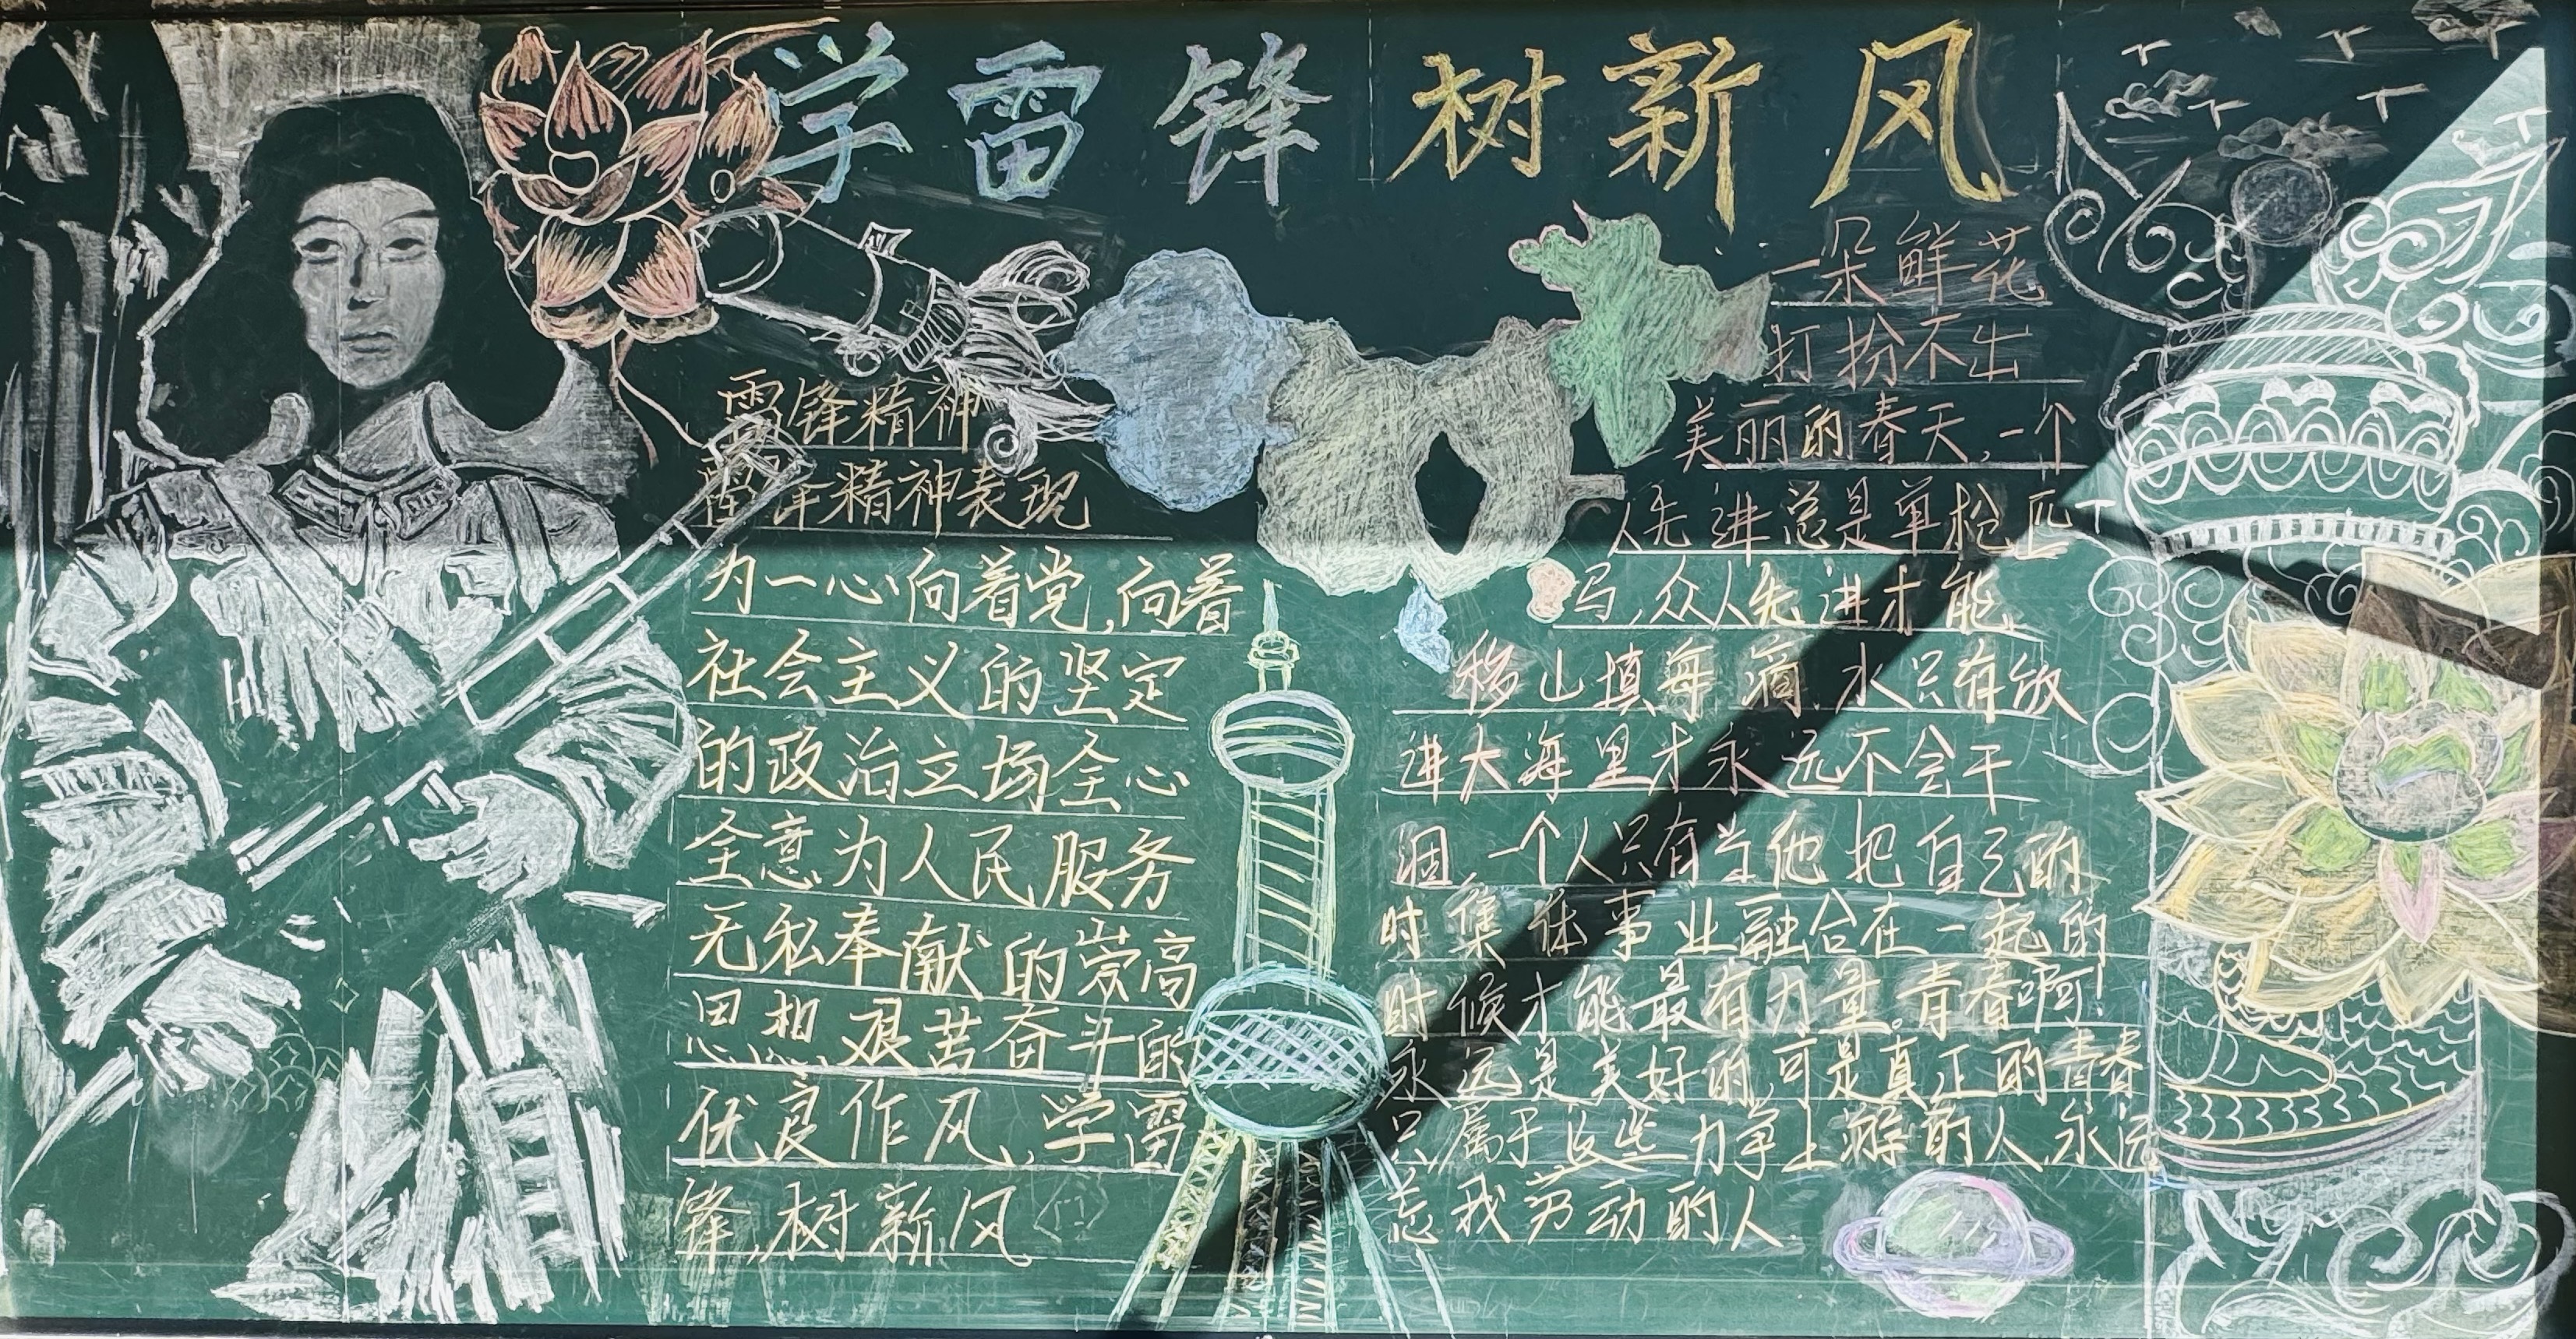 学雷锋树新风
雷锋精神
雷锋精神表现
为一心向着党,向着
社会主义的坚定
的政治立场全心
全意为人民服务
无私奉献的崇高
思想 艰苦奋斗的
优良作风,学雷
锋,树新风
一朵鲜花
打扮不出
美丽的春天,一个
人先进总是单枪匹
马,众人先进才能
移山填海 滴水只有放
进大海里才永远不会干
涸,一个人只有当他把自己的
时集体事业融合在一起的
时候才能最有力量。青春啊!
永远是美好的,可是真正的青春
只属于这些力争上游的人,永远
忘我劳动的人.